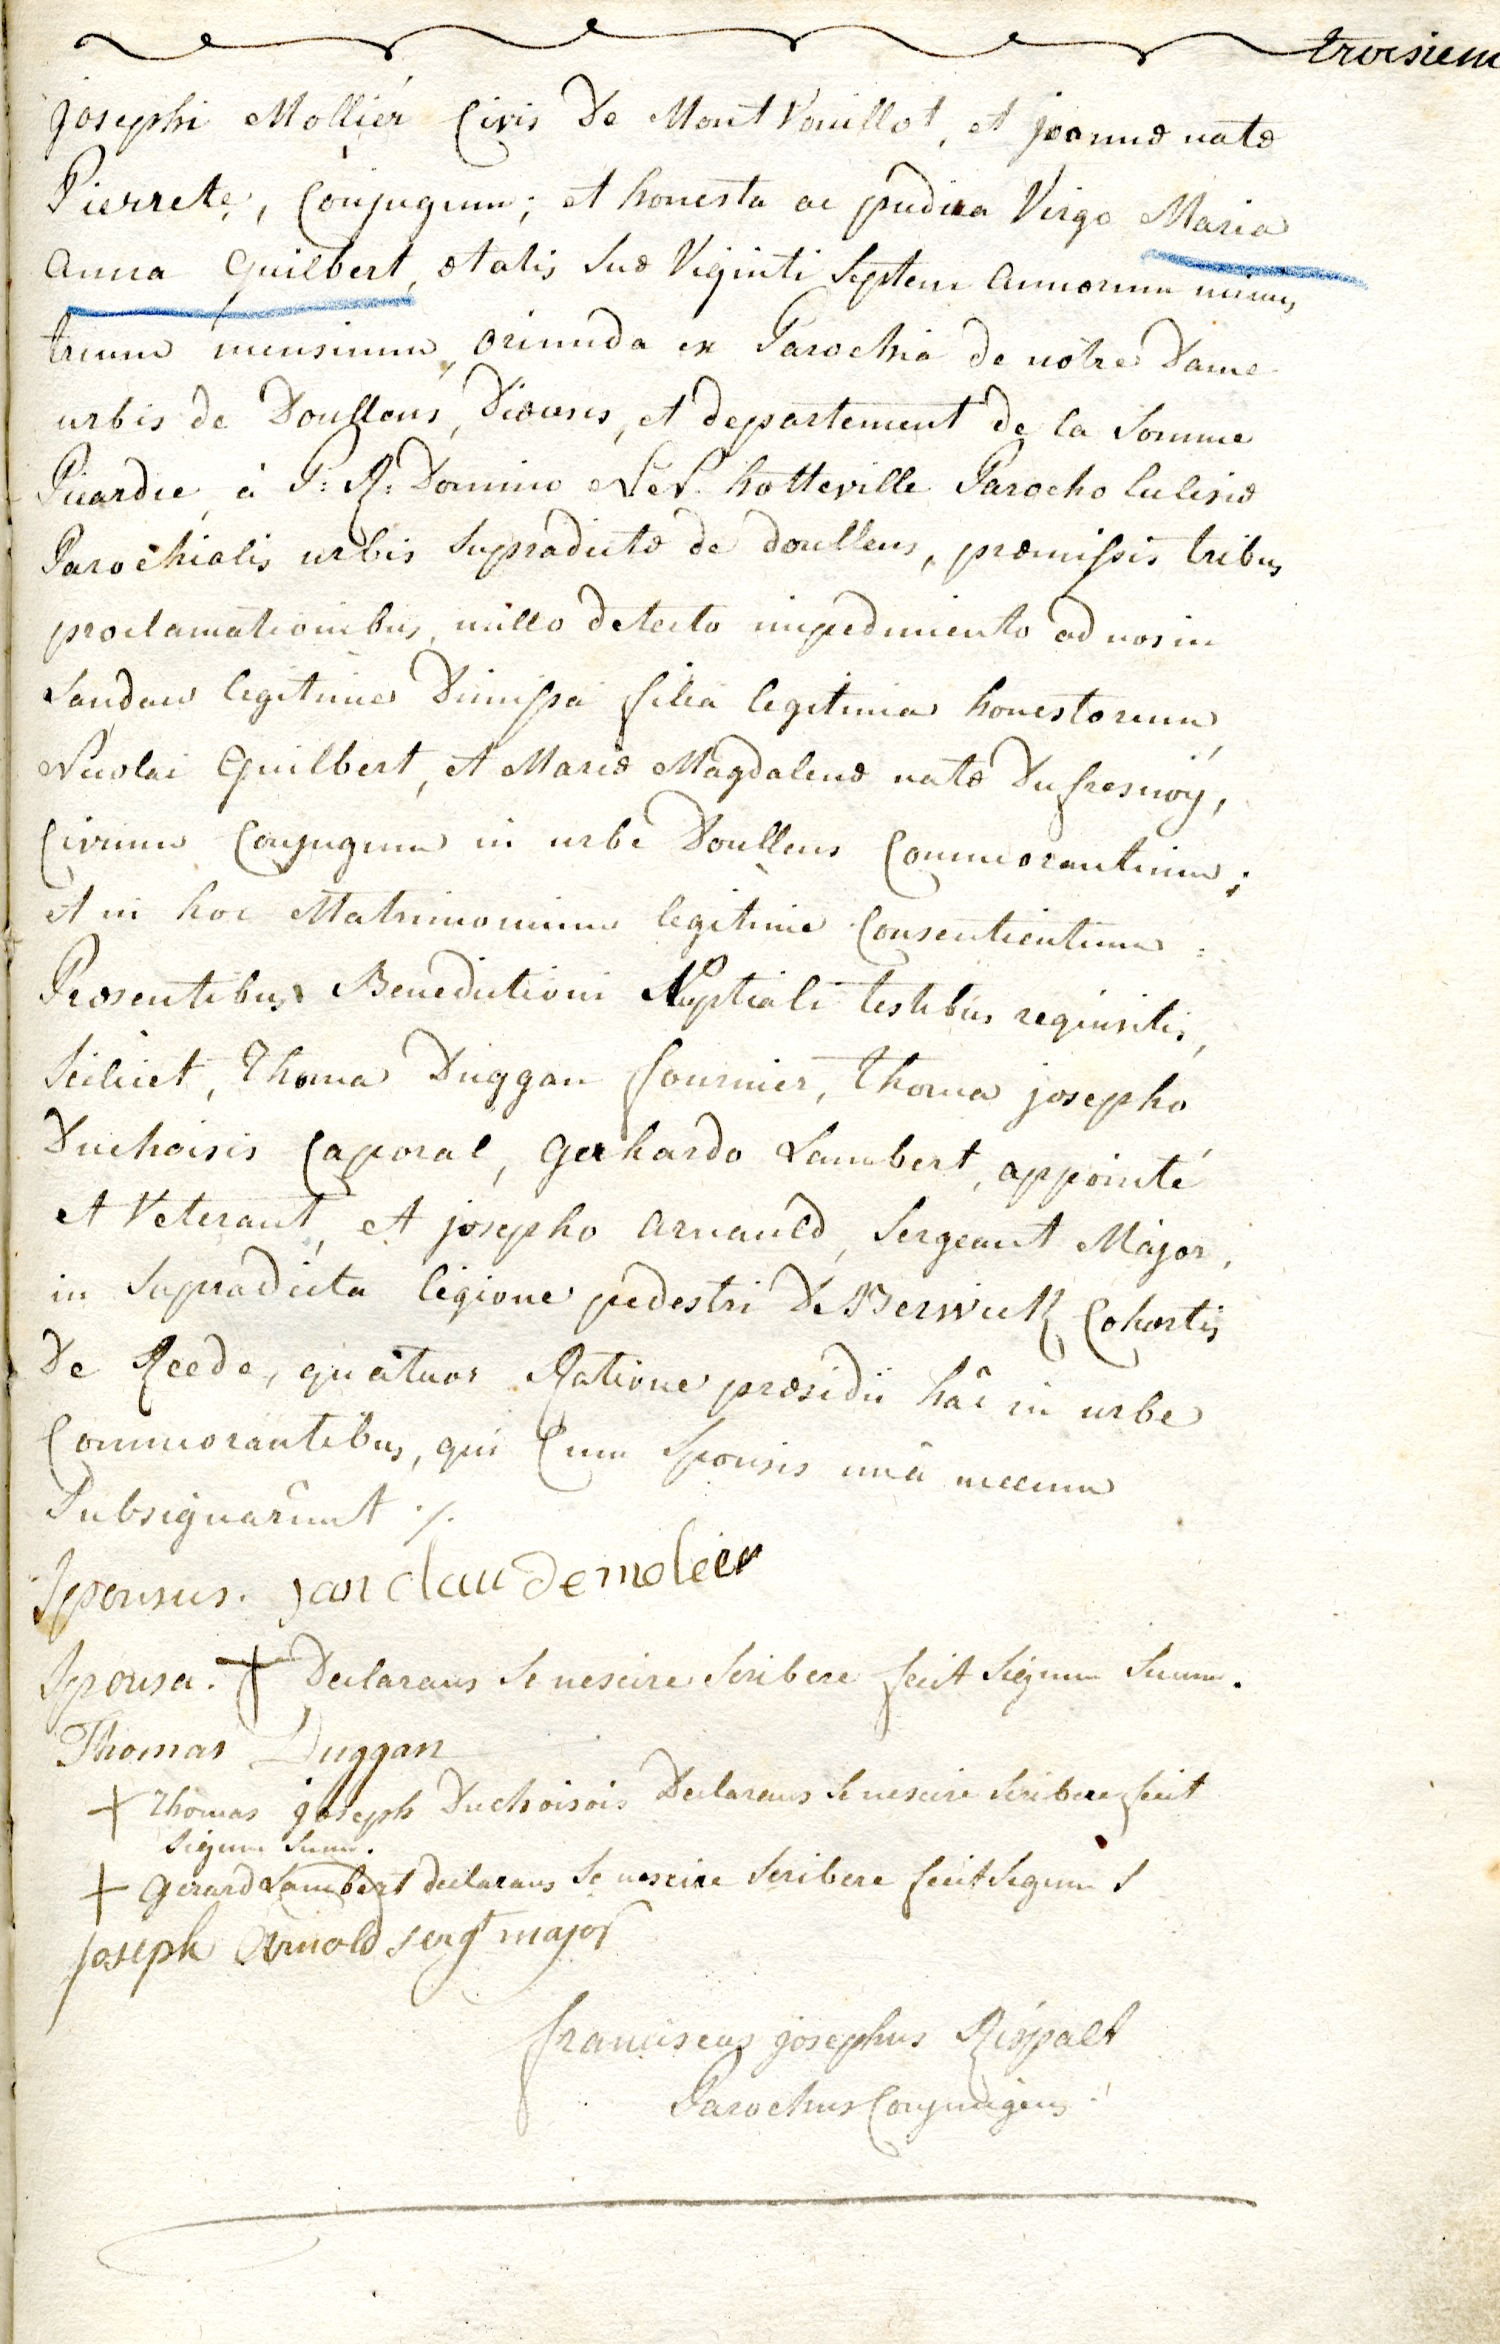 troisiem
josephi Mollier Civis De Mont Vouillot, et joannæ natæ
Pierrete, Conjugum; et honesta ac pudica Virgo Maria
Anna Guilbert, ætatis suæ Viginti septem annorum minus
trium mensium, oriunda ex Parochia de nôtre Dame
urbis de Doullens, Diœcesis, et departement de la Somme
Picardie, à P: R: Domino hotteville Parocho Eclesiæ
Parochialis urbis supradictæ de doullens, præmissis tribus
proclamationibus, nullo detecto impedimento ad nos in
Landau legitime Dimissa filia legitima honestorum
Nicolai Guilbert, et Mariæ Magdalenæ natæ Dufresnoy,
Civium Conjugum in urbe Doullens Commorantium;
et in hoc Matrimonium legitime Consentientium:
Præsentibus Benedictioni Nuptiali testibus requisitis,
scilicet, Thoma Duggan fourrier, Thoma josepho
Duchoisis Caporal, Gerhardo Lambert, appointé
et Veterant, et josepho Arnauld, Sergeant Major,
in supradicta legione pedestri De Berwick Cohortis
De Reede, quatuor Ratione præsidii hâc in urbe
Commorantibus, qui Cum Sponsis unâ mecum
Subsignarûnt ·/.
Sponsus. jan claude moleer
Sponsa. + Declarans se nescire scribere fecit signum suum.
Thomas Duggan
+ Thomas joseph Duchoisois Declarans se nescire scribere fecit
signum suum.
+ Gerard Lambert declarans se nescire scribere fecit signum s
joseph Arnold sergt major
franciscus josephus Rispalt
Parochus Conjungens